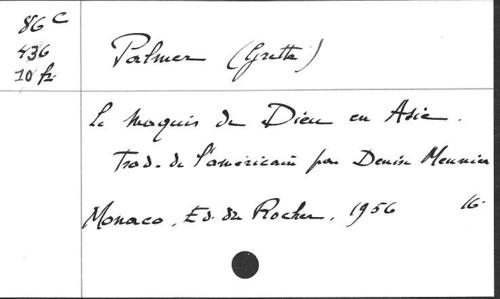 86 C
436
10 fr
Palmer (Gretta)
Le Maquis de Dieu en Asie.
Trad. de l'américain par Denise Meunier
Monaco, Ed. du Rocher, 1956 16°